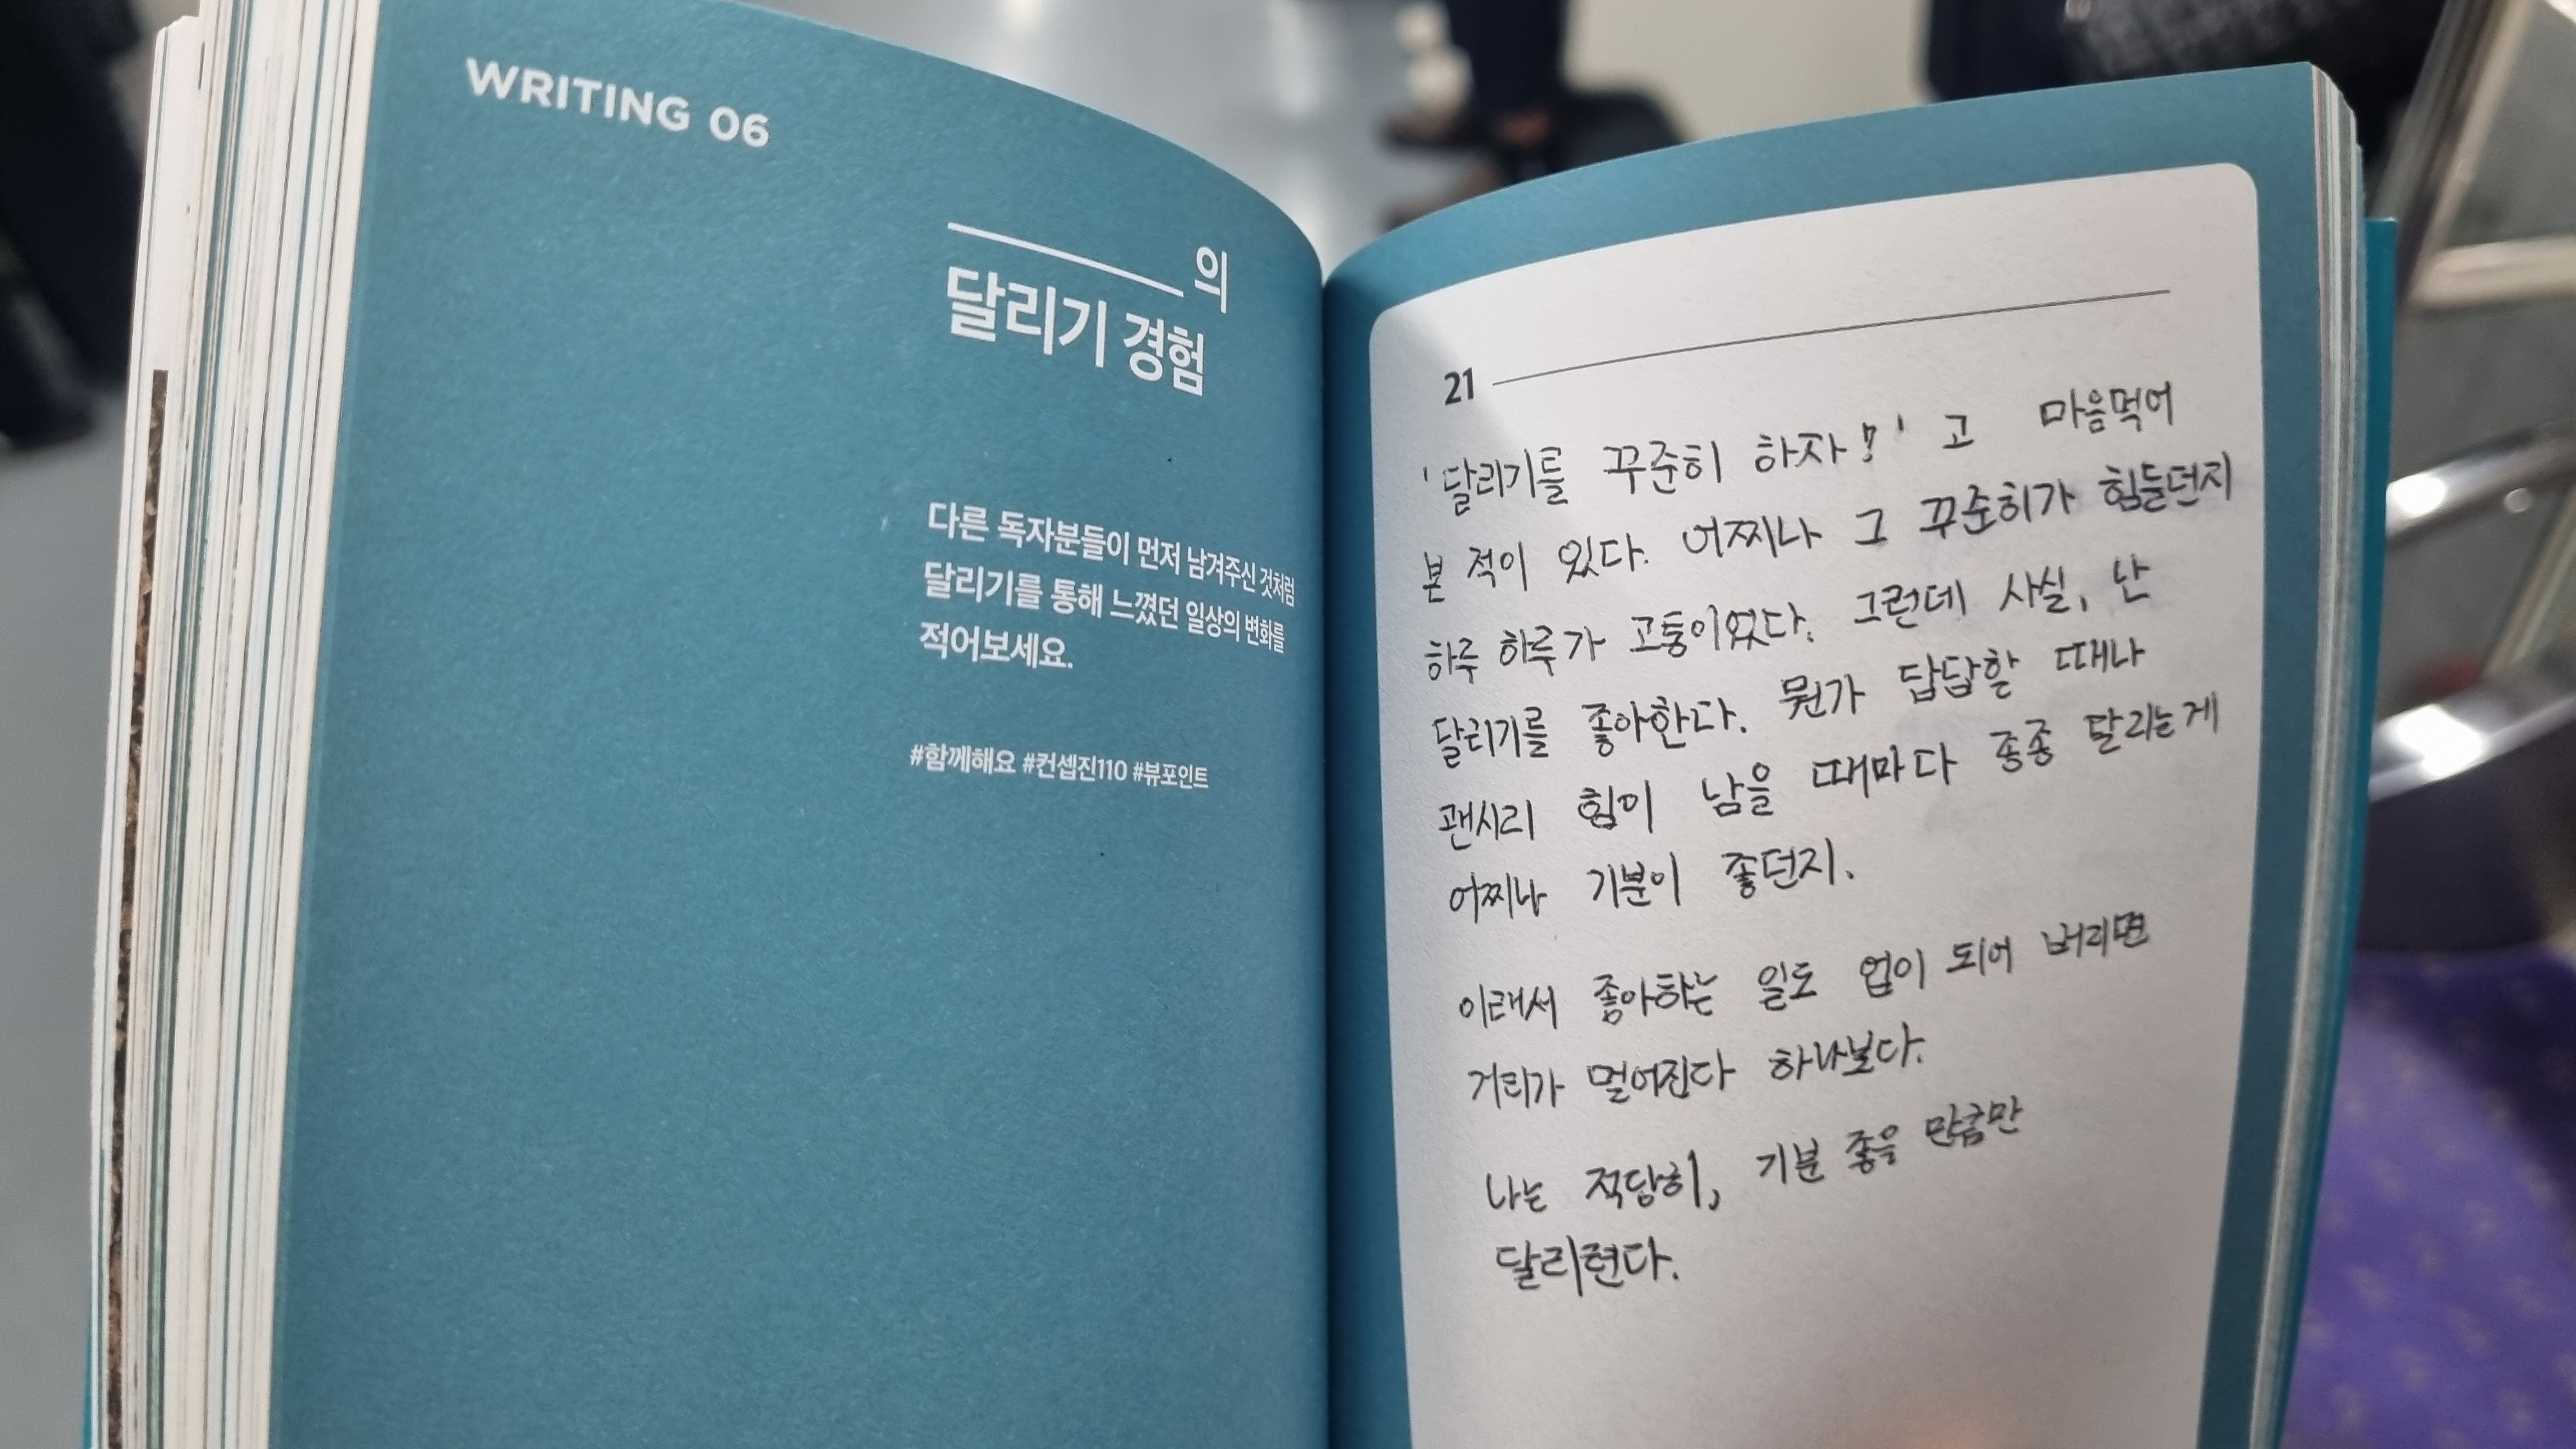 WRITING 06
의
달리기 경험
다른 독자분들이 먼저 남겨주신 것처럼
달리기를 통해 느꼈던 일상의 변화를
적어보세요.
#함께해요 #컨셉진110 #뷰포인트
21
'달리기를 꾸준히 하자!' 고 마음먹어
본 적이 있다. 어찌나 그 꾸준히가 힘들던지
하루 하루가 고통이었다. 그런데 사실, 난
달리기를 좋아한다. 뭔가 답답할 때나
괜시리 힘이 남을 때마다 종종 달리는게
어찌나 기분이 좋던지.
이래서 좋아하는 일도 업이 되어 버리면
거리가 멀어진다 하나보다.
나는 적당히, 기분 좋을 만큼만
달리련다.